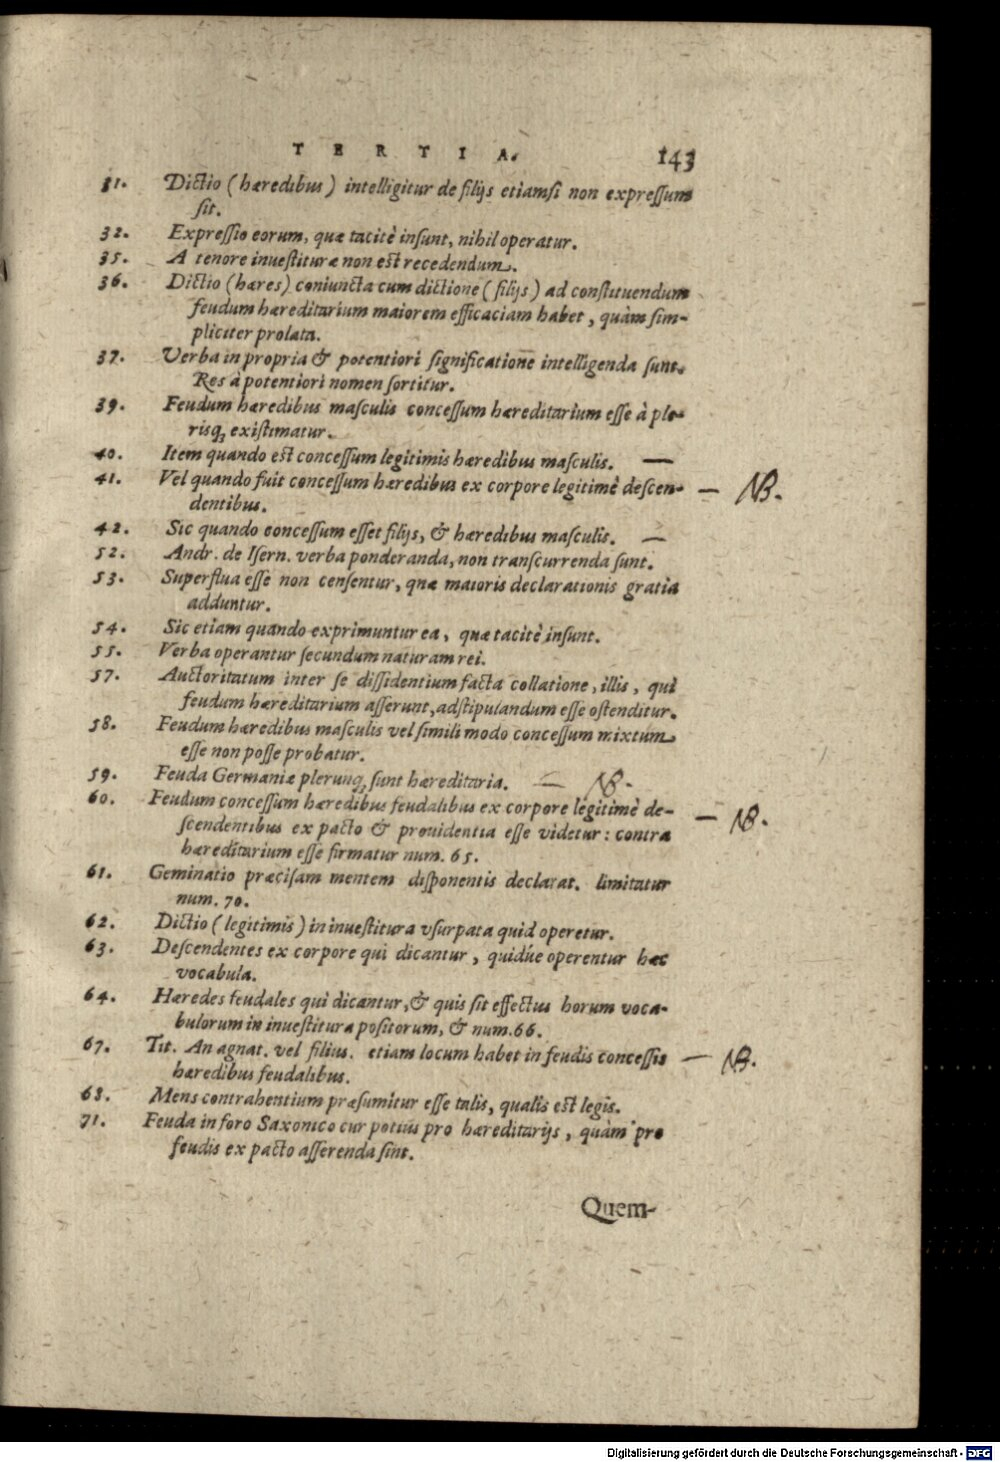 TERTIA. 143
31. Dictio (hæredibus) intelligitur de filijs etiamsi non expreſſum
ſit.
32. Expreſſio eorum, quæ tacitè inſunt, nihil operatur.
35. A tenore inueſtituræ non eſt recedendum.
36. Dictio (hæres) coniuncta cum dictione (filijs) ad conſtituendum
feudum hæreditarium maiorem efficaciam habet, quàm ſim-
pliciter prolata.
37. Verba in propria & potentiori ſignificatione intelligenda ſunt.
Res à potentiori nomen ſortitur.
39. Feudum hæredibus maſculis conceſſum hæreditarium eſſe à ple-
risq; exiſtimatur.
40. Item quando eſt conceſſum legitimis hæredibus maſculis. —
41. Vel quando fuit conceſſum hæredibus ex corpore legitimè deſcen- — NB.
dentibus.
42. Sic quando conceſſum eſſet filijs, & hæredibus maſculis. —
52. Andr. de Iſern. verba ponderanda, non tranſcurrenda ſunt.
53. Superflua eſſe non cenſentur, quæ maioris declarationis gratia
adduntur.
54. Sic etiam quando exprimuntur ea, quæ tacitè inſunt.
55. Verba operantur ſecundum naturam rei.
57. Auctoritatum inter ſe diſſidentium facta collatione, illis, qui
feudum hæreditarium aſſerunt, adſtipulandum eſſe oſtenditur.
58. Feudum hæredibus maſculis vel ſimili modo conceſſum mixtum
eſſe non poſſe probatur.
59. Feuda Germaniæ plerunq; ſunt hæreditaria. — NB.
60. Feudum conceſſum hæredibus feudalibus ex corpore legitimè de- — NB.
ſcendentibus ex pacto & prouidentia eſſe videtur: contra
hæreditarium eſſe firmatur num. 65.
61. Geminatio præciſam mentem diſponentis declarat. limitatur
num. 70.
62. Dictio (legitimis) in inueſtitura vſurpata quid operetur.
63. Deſcendentes ex corpore qui dicantur, quidúe operentur hæc
vocabula.
64. Hæredes feudales qui dicantur, & quis ſit effectus horum voca-
bulorum in inueſtitura poſitorum, & num. 66.
67. Tit. An agnat. vel filius. etiam locum habet in feudis conceſſis — NB.
hæredibus feudalibus.
68. Mens contrahentium præſumitur eſſe talis, qualis eſt legis.
71. Feuda in foro Saxonico cur potius pro hæreditarijs, quàm pro
feudis ex pacto aſſerenda ſint.
Quem-
Digitalisierung gefördert durch die Deutsche Forschungsgemeinschaft - DFG